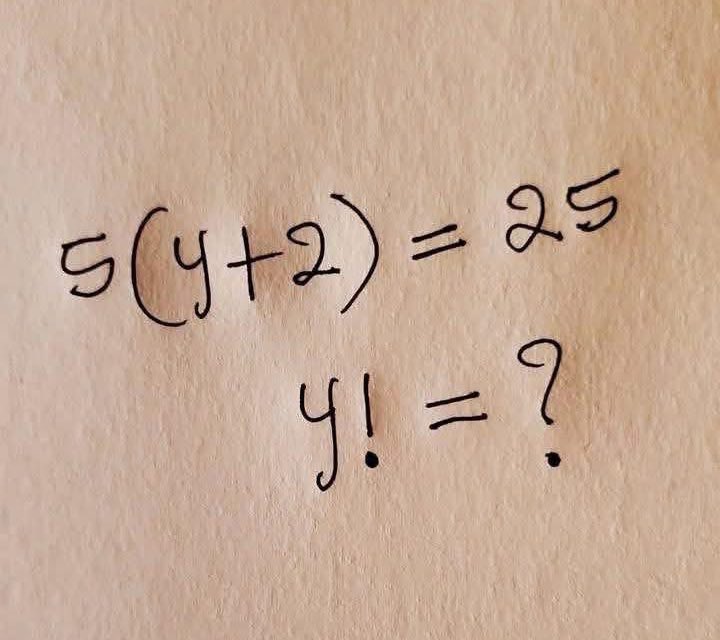 5(y+2) = 25
y! = ?